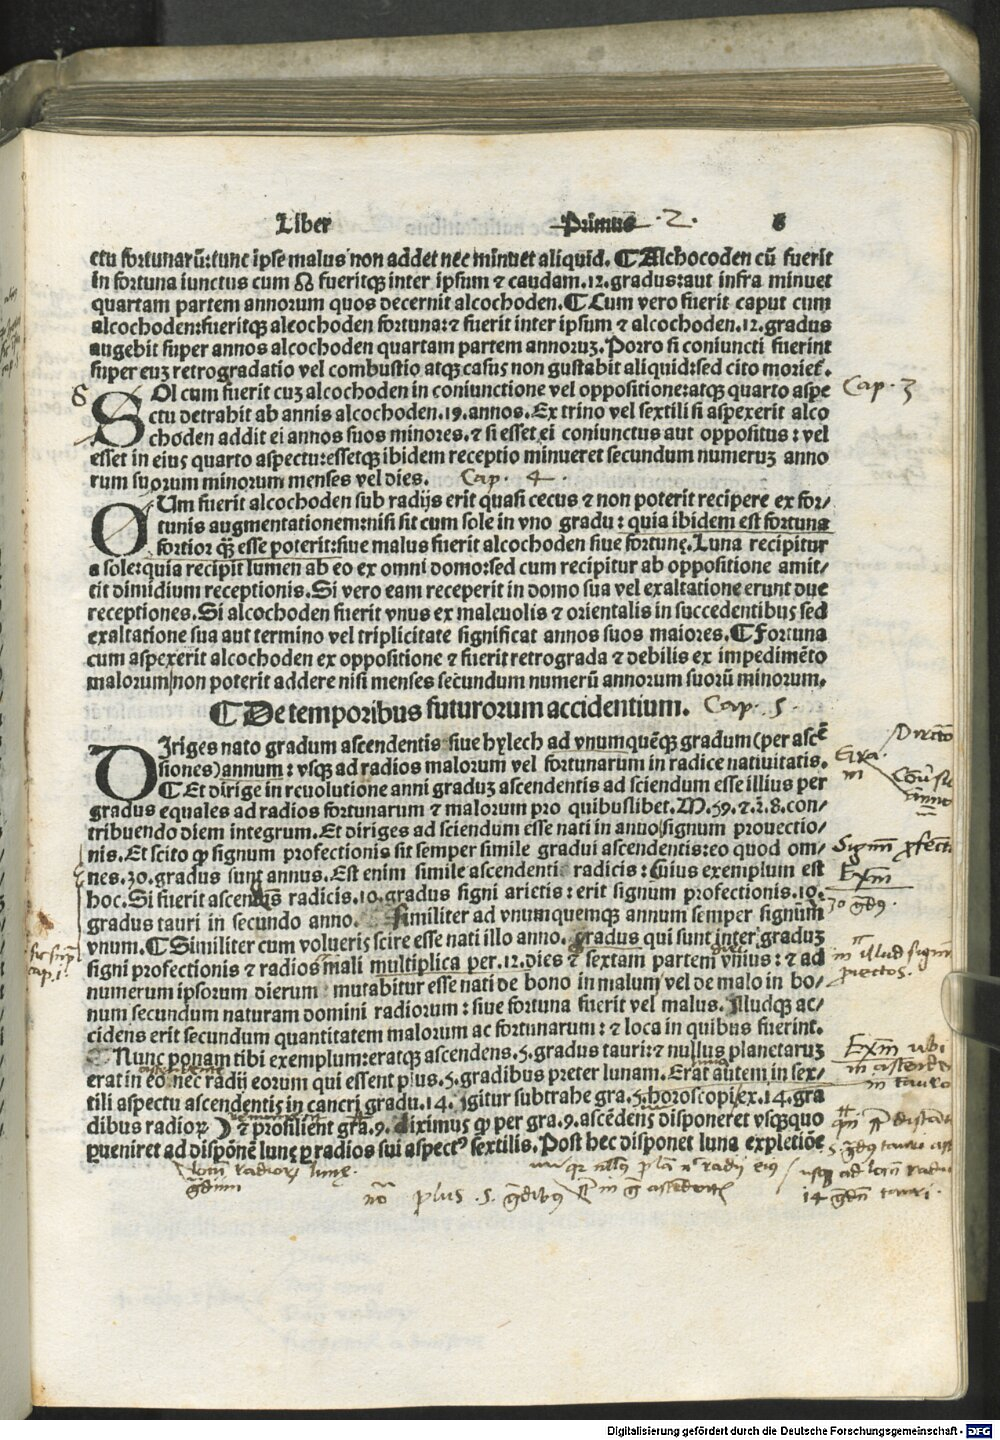 Liber Primus .2. 8
ctu fortunarū: tunc ipse malus non addet nec minuet aliquid. ¶ Alchocoden cū fuerit
in fortuna iunctus cum ☊ fueritqꝫ inter ipsum ⁊ caudam .12. gradus: aut infra minuet
quartam partem annorum quos decernit alcochoden. ¶ Cum vero fuerit caput cum
alcochoden: fueritqꝫ alcochoden fortuna: ⁊ fuerit inter ipsum ⁊ alcochoden .12. gradus
augebit super annos alcochoden quartam partem annoruꝫ. Porro si coniuncti fuerint
super euꝫ retrogradatio vel combustio atqꝫ casus non gustabit aliquid: sed cito morieť.
SOl cum fuerit cuꝫ alcochoden in coniunctione vel oppositione: atqꝫ quarto aspe
Cap. 3
ctu detrahit ab annis alcochoden .19. annos. Ex trino vel sextili si aspexerit alco
choden addit ei annos suos minores. ⁊ si esset ei coniunctus aut oppositus: vel
esset in eius quarto aspectu: essetqꝫ ibidem receptio minueret secundum numeruꝫ anno
rum suorum minorum menses vel dies. Cap. 4.
Um fuerit alcochoden sub radijs erit quasi cecus ⁊ non poterit recipere ex for/
tunis augmentationem: nisi sit cum sole in vno gradu: quia ibidem est fortuna
fortior qꝫ̃ esse poterit: siue malus fuerit alcochoden siue fortunę. Luna recipitur
a sole: quia recipit lumen ab eo ex omni domo: sed cum recipitur ab oppositione amit/
tit dimidium receptionis. Si vero eam receperit in domo sua vel exaltatione erunt due
receptiones. Si alcochoden fuerit vnus ex maleuolis ⁊ orientalis in succedentibus sed
exaltatione sua aut termino vel triplicitate significat annos suos maiores. ¶ Fortuna
cum aspexerit alcochoden ex oppositione ⁊ fuerit retrograda ⁊ debilis ex impedimēto
malorum non poterit addere nisi menses secundum numerū annorum suorū minorum.
¶ De temporibus futurorum accidentium. Cap. 5.
DIriges nato gradum ascendentis siue hylech ad vnumquēqꝫ gradum (per ascē
siones) annum: vsqꝫ ad radios malorum vel fortunarum in radice natiuitatis.
¶ Et dirige in reuolutione anni graduꝫ ascendentis ad sciendum esse illius per
gradus equales ad radios fortunarum ⁊ malorum pro quibuslibet .M. 59. ⁊ .2. 8. con/
tribuendo diem integrum. Et diriges ad sciendum esse nati in anno signum prouectio/
nis. Et scito ꝙ signum profectionis sit semper simile gradui ascendentis: eo quod om/
nes .30. gradus sunt annus. Est enim simile ascendenti radicis: cuius exemplum est
Exm
hoc. Si fuerit ascendēs radicis .10. gradus signi arietis: erit signum profectionis .10.
gradus tauri in secundo anno. Similiter ad vnumquemqꝫ annum semper signum
vnum. ¶ Similiter cum volueris scire esse nati illo anno. gradus qui sunt inter graduꝫ
signi profectionis ⁊ radios mali multiplica per .12. dies ⁊ sextam partem vnius: ⁊ ad
numerum ipsorum dierum mutabitur esse nati de bono in malum vel de malo in bo/
num secundum naturam domini radiorum: siue fortuna fuerit vel malus. Illudqꝫ ac/
cidens erit secundum quantitatem malorum ac fortunarum: ⁊ loca in quibus fuerint.
Nunc ponam tibi exemplum: eratqꝫ ascendens .5. gradus tauri: ⁊ nullus planetaruꝫ
erat in eo nec radij eorum qui essent plus .5. gradibus preter lunam. Erat autem in sex/
tili aspectu ascendentis in cancri gradu .14. igitur subtrahe gra .5. horoscopi ex .14. gra
dibus radioꝝ ☽ ⁊ prosilient gra .9. diximus ꝙ per gra .9. ascēdens disponeret vsqꝫquo
ꝑueniret ad dispōnē lunę ꝑ radios sui aspectꝰ sextilis. Post hec disponet luna expletiōe
plus .5.
Digitalisierung gefördert durch die Deutsche Forschungsgemeinschaft - DFG